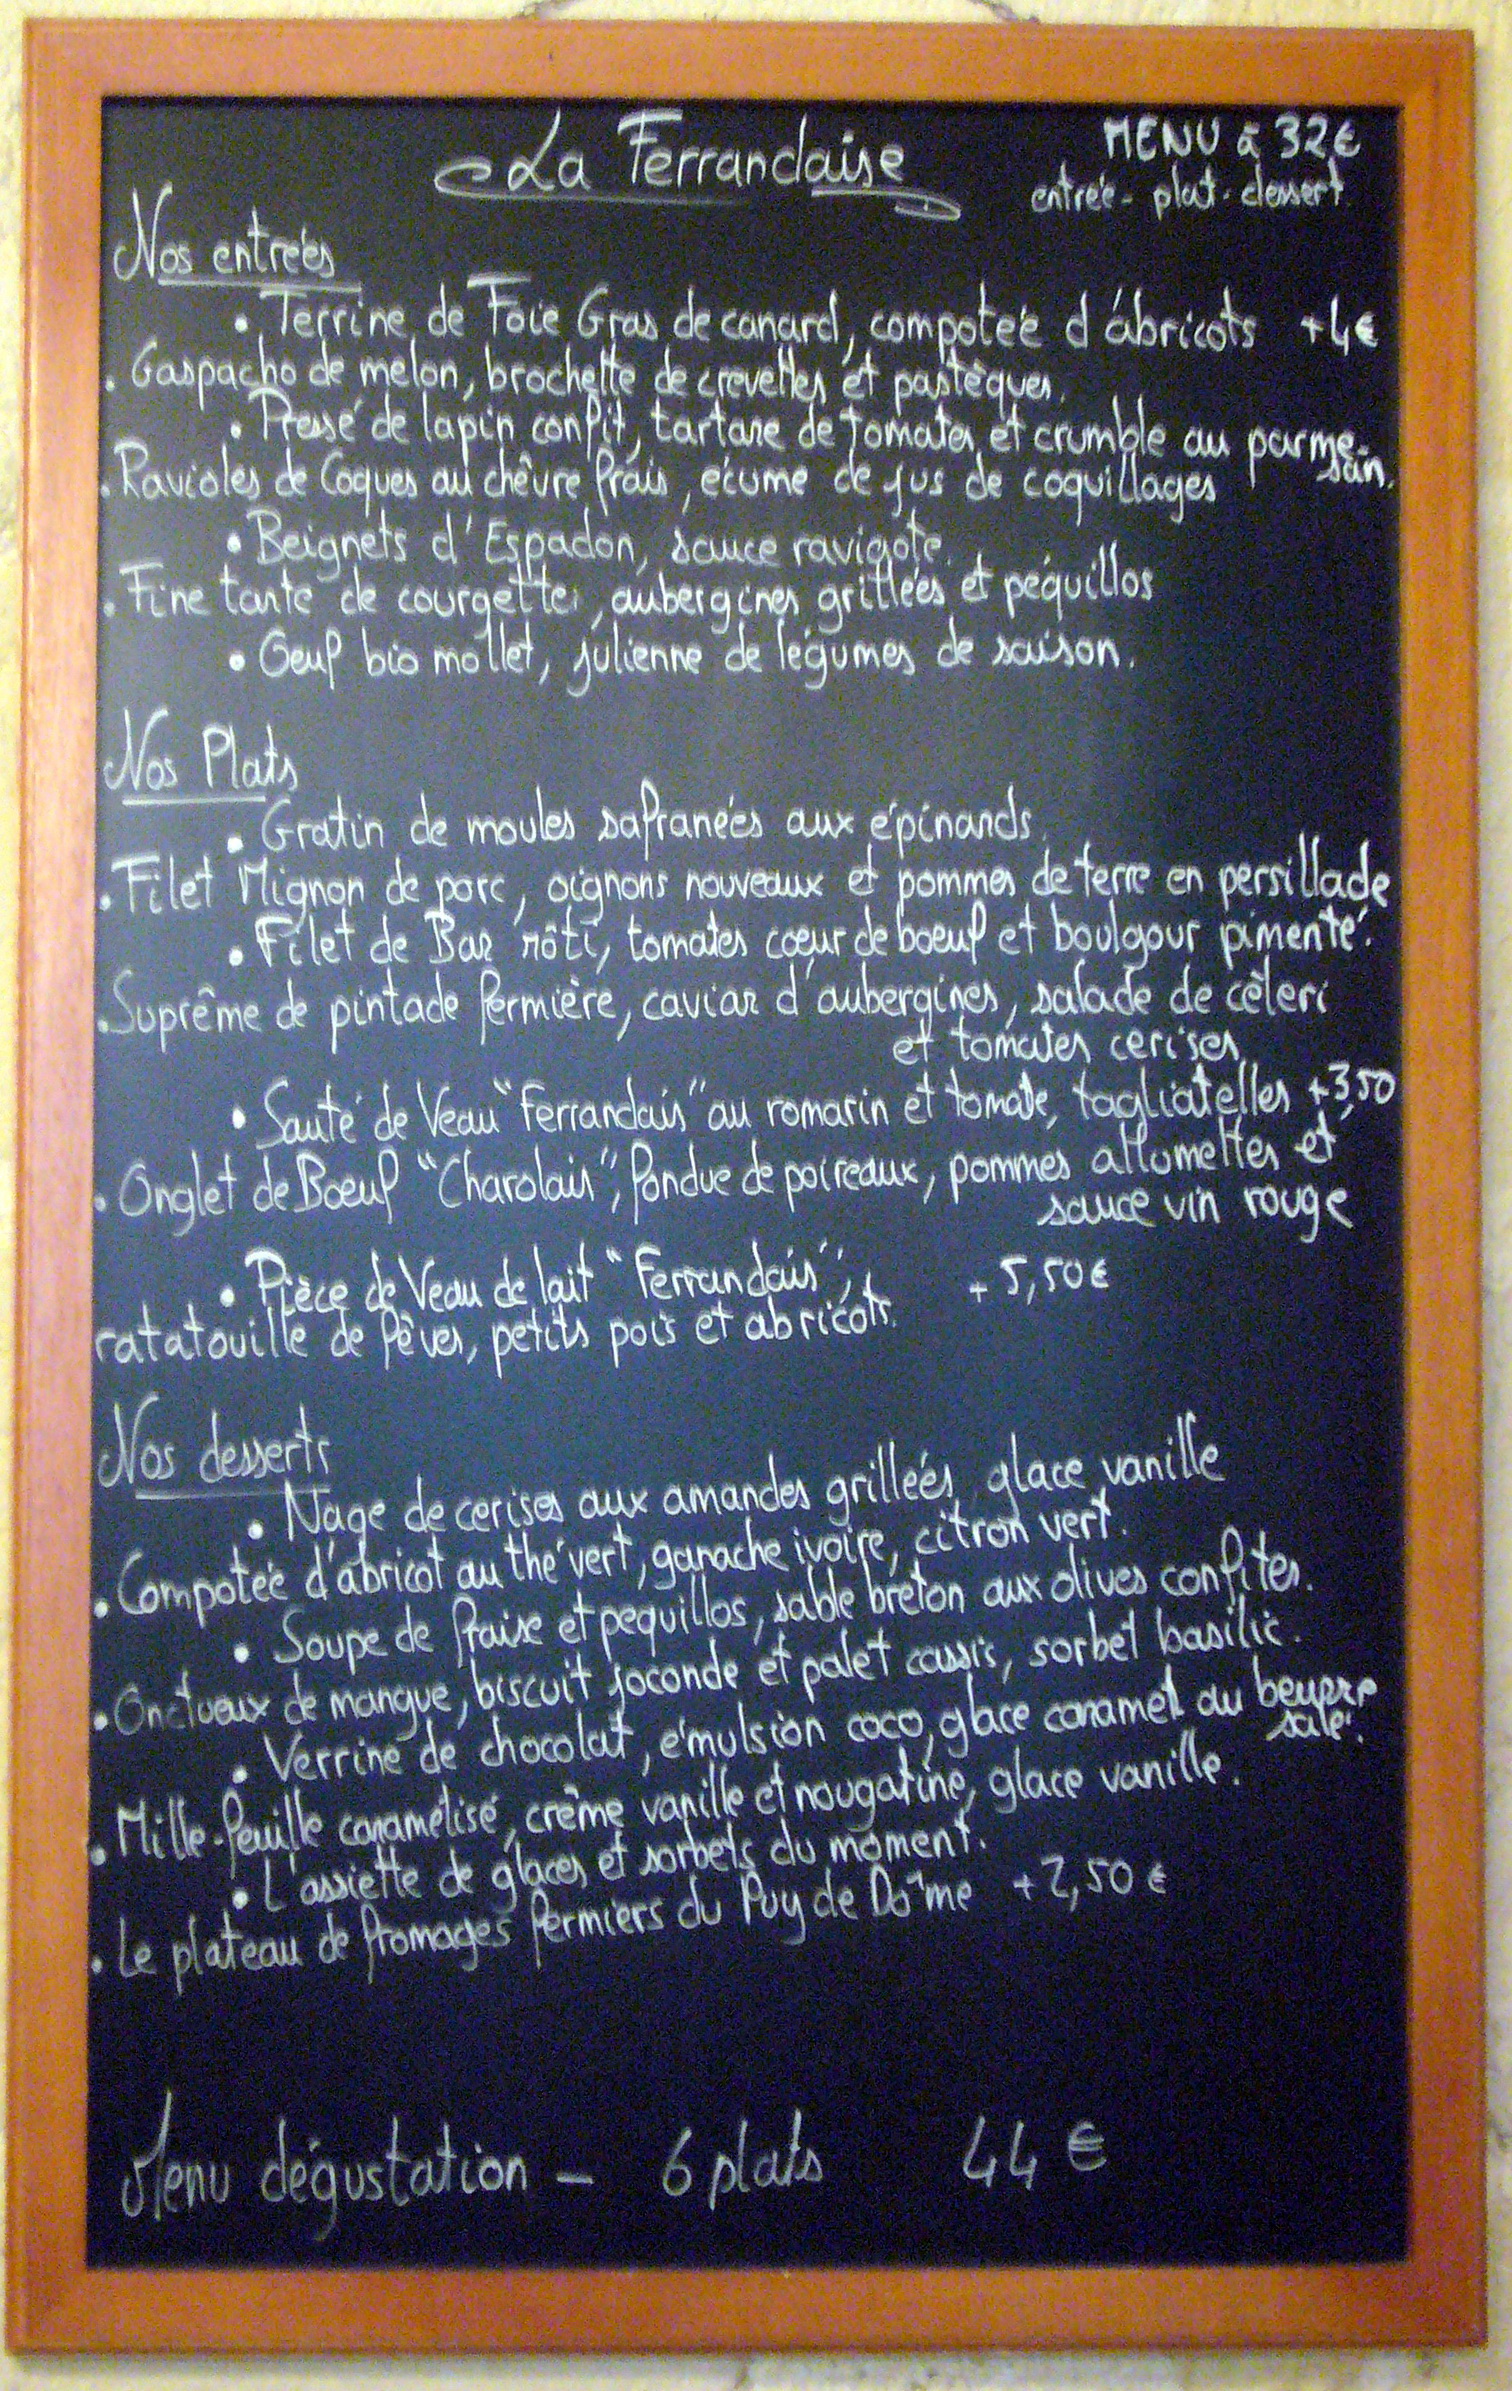 La Ferrandaise
MENU à 32€
entrée - plat - dessert
Nos entrées
• Terrine de Foie Gras de canard, compotée d'abricots +4€
• Gaspacho de melon, brochette de crevettes et pastèques.
• Pressé de lapin confit, tartare de tomates et crumble au parme-
san.
• Ravioles de Coques au chèvre frais, écume de jus de coquillages
• Beignets d'Espadon, sauce ravigote.
• Fine tarte de courgettes, aubergines grillées et péquillos
• Oeuf bio mollet, julienne de légumes de saison.
Nos Plats
• Gratin de moules safranées aux épinards.
• Filet Mignon de porc, oignons nouveaux et pommes de terre en persillade
• Filet de Bar rôti, tomates cœur de boeuf et boulgour pimenté.
• Suprême de pintade fermière, caviar d'aubergines, salade de cèleri
et tomates cerises
• Sauté de Veau "Ferrandais" au romarin et tomate, tagliatelles +3,50
• Onglet de Boeuf "Charolais", fondue de poireaux, pommes allumettes et
sauce vin rouge
• Pièce de Veau de lait "Ferrandais", +5,50€
ratatouille de fèves, petits pois et abricots.
Nos desserts
• Nage de cerises aux amandes grillées, glace vanille
• Compotée d'abricot au thé vert, ganache ivoire, citron vert.
• Soupe de fraise et pequillos, sablé breton aux olives confites.
• Onctueux de mangue, biscuit joconde et palet cassis, sorbet basilic.
• Verrine de chocolat, émulsion coco, glace caramel au beurre
salé.
• Mille-feuille caramélisé, crème vanille et nougatine, glace vanille.
• L'assiette de glaces et sorbets du moment.
• Le plateau de fromages fermiers du Puy de Dôme +2,50 €
Menu dégustation - 6 plats 44 €